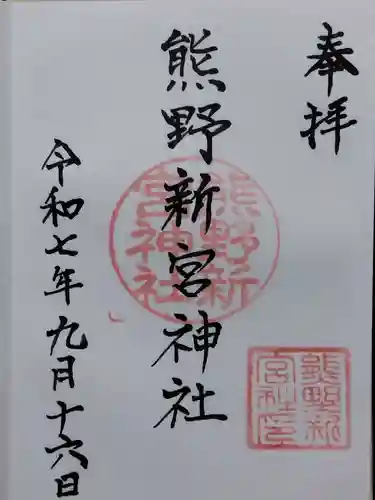 奉拝
熊野新宮神社
令和七年九月十六日
熊野新
宮神社
熊野新
宮社印